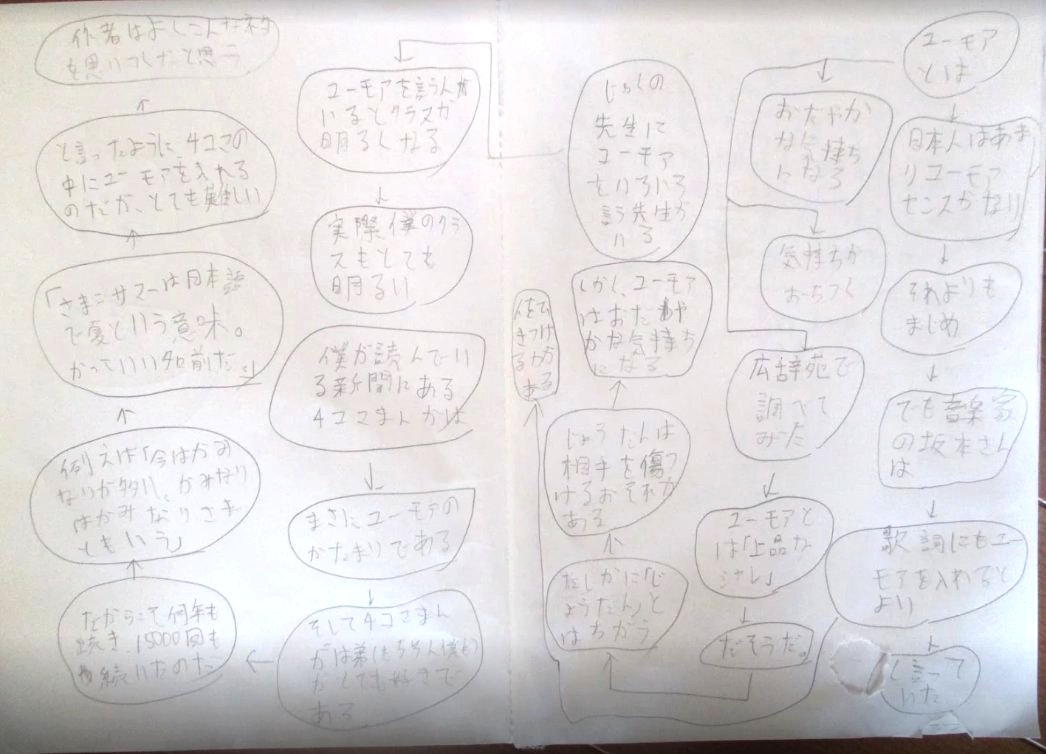 ユーモア
とは
日本人はあま
りユーモア
センスがない
それよりも
まじめ
でも音楽家
の坂本さん
は
歌詞にもユー
モアを入れると
よい
と言って
いた
おだやか
な気持ち
になる
気持ちが
おちつく
広辞苑で
調べて
みた
ユーモアと
は「上品な
シャレ」
だそうだ。
たしかに「じ
ょうだん」と
はちがう
じょうだんは
相手を傷つ
けるおそれが
ある
人をひ
きつける力が
ある
しかし、ユーモア
はおだやか
かな気持ち
になる
じゅくの
先生に
ユーモア
をいろいろ
言う先生が
いる
ユーモアを言う人が
いるとクラスが
明るくなる
実際僕のクラ
スもとても
明るい
僕が読んでい
る新聞にある
4コマまんがは
まさにユーモアの
かたまりである
そして4コマまん
がは弟(もちろん僕も)
がとても好きで
ある
だからこそ何年も
続き、15000回も
続いたのだ
例えば「今はかみ
なりが多い、かみなり
はかみなりさま
ともいう」
「さまーサマーは日本語
で夏という意味。
かっていい名前だ。」
と言ったように4コマの
中にユーモアを入れる
のだが、とても難しい
作者はよくこんなネタ
を思いつくなと思う